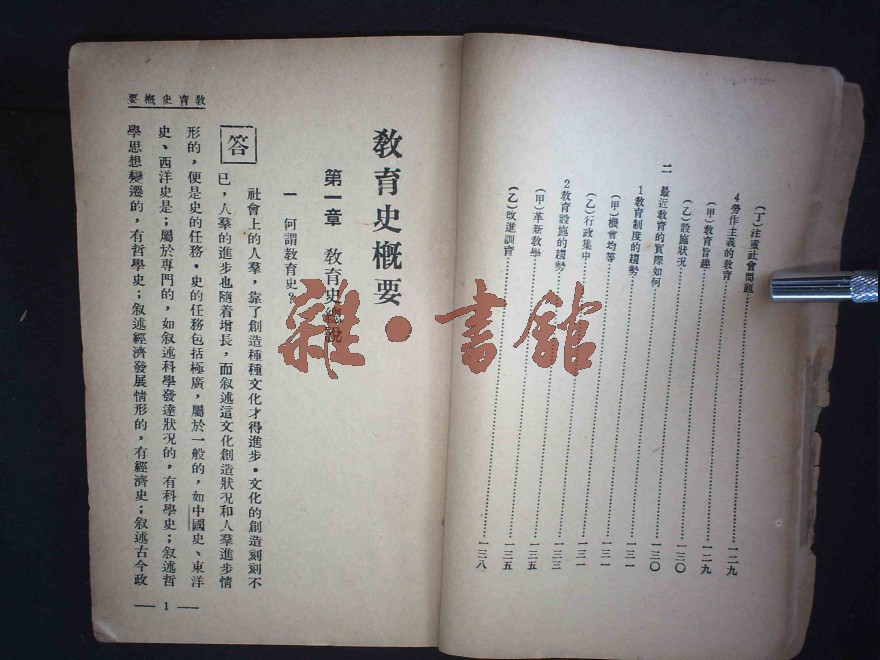 (丁)注重社會問題……一二九
4 勞作主義的教育……一二九
(甲)教育旨趣……一二九
(乙)設施狀況……一三〇
二 最近教育的實際如何……一三〇
1 教育制度的趨勢……一三一
(甲)機會均等……一三一
(乙)行政集中……一三一
2 教育設施的趨勢……一三三
(甲)革新教學……一三五
(乙)改進訓育……一三五
一三八
教育史概要
第一章 教育史總說
一 何謂教育史?
答
社會上的人羣,靠了創造種種文化才得進步。文化的創造刻刻不
已,人羣的進步也隨着增長,而叙述這文化創造狀況和人羣進步情
形的,便是史的任務。史的任務包括極廣,屬於一般的,如中國史、東洋
史、西洋史是;屬於專門的,如叙述科學發達狀況的,有科學史;叙述哲
學思想變遷的,有哲學史;叙述經濟發展情形的,有經濟史;叙述古今政
教育史概要
— 1 —
雜·書館